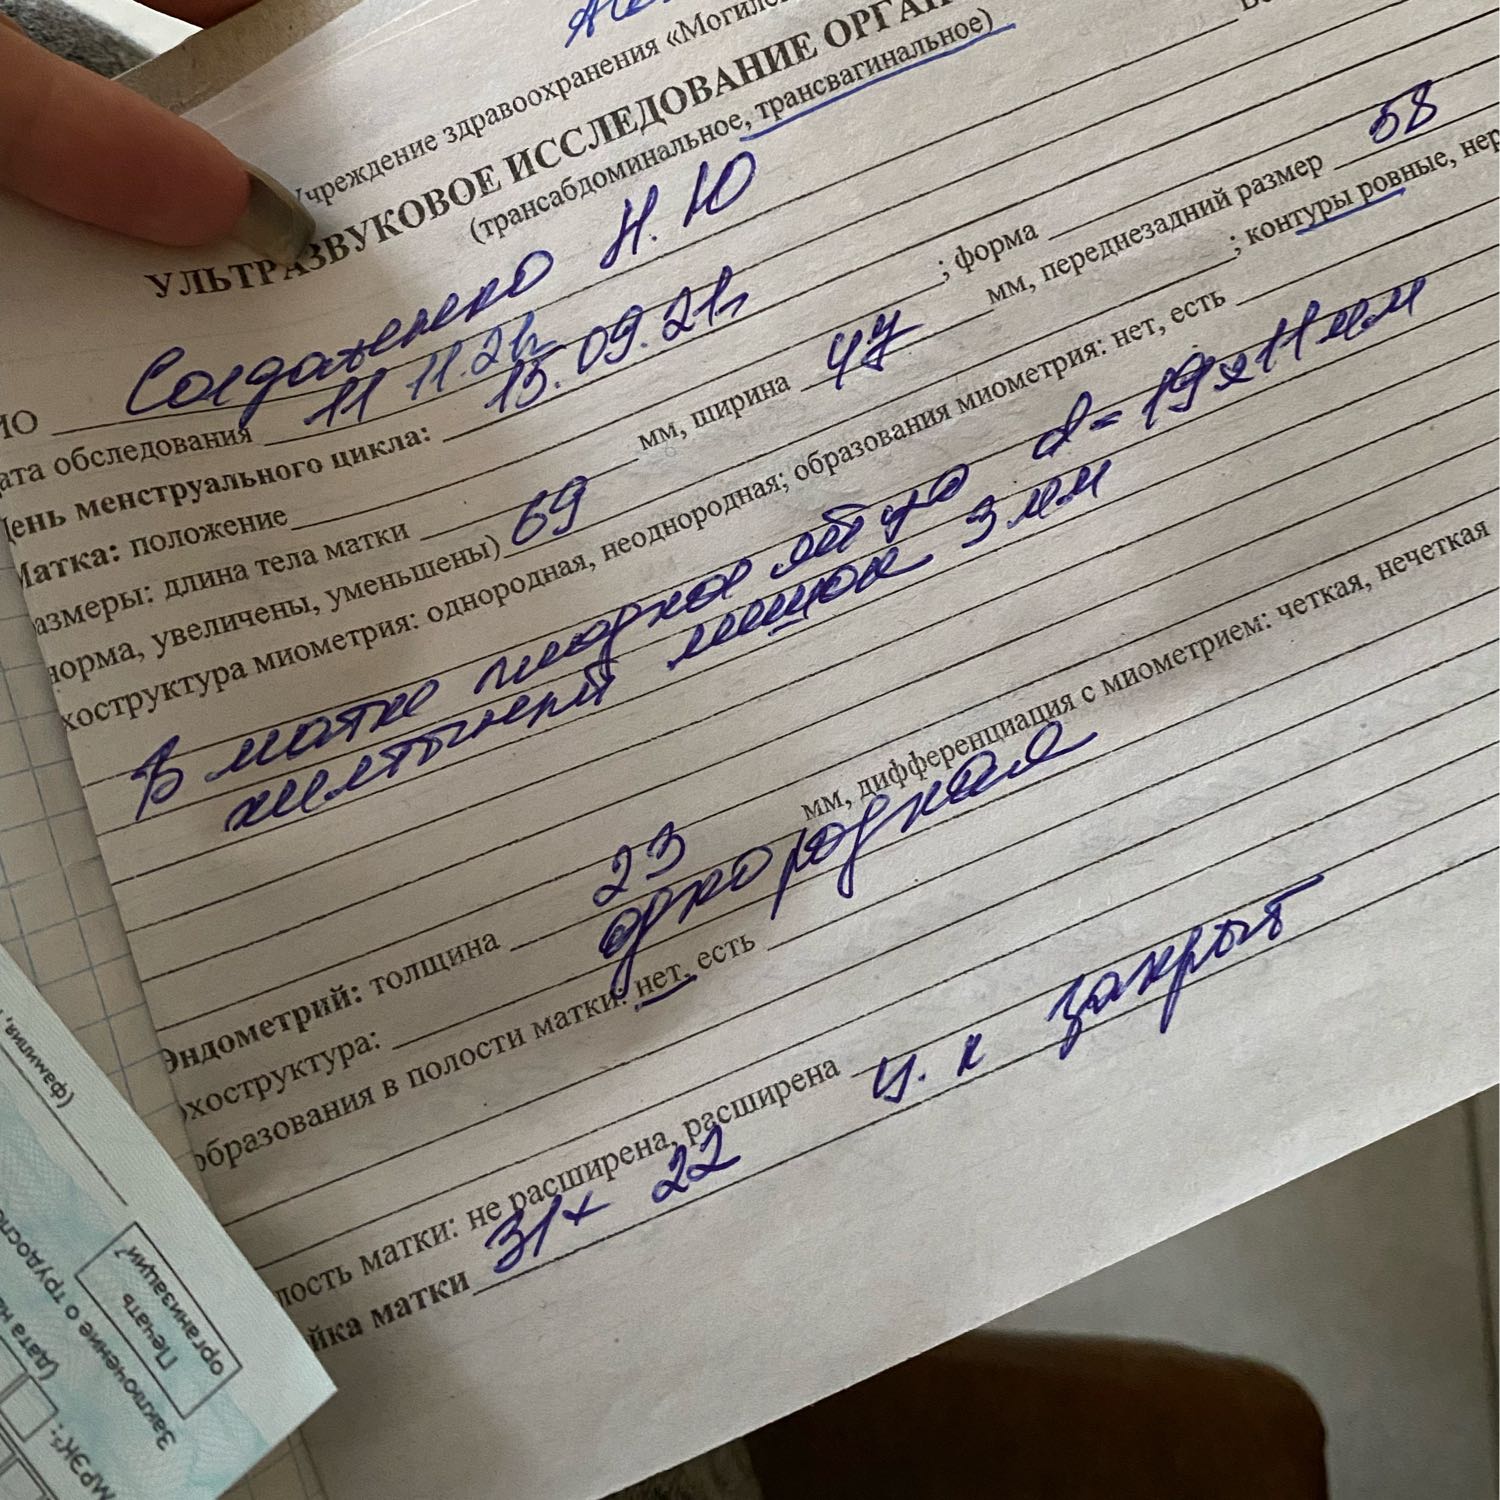 Учреждение здравоохранения «Могилев
УЛЬТРАЗВУКОВОЕ ИССЛЕДОВАНИЕ ОРГАН
(трансабдоминальное, трансвагинальное)
ИО Солдаженко Н. Ю
ата обследования 11 11.21г
День менструального цикла: 15.09.21г
Матка: положение ; форма
азмеры: длина тела матки мм, ширина 47 мм, переднезадний размер 58
норма, увеличены, уменьшены) 69 ; контуры ровные, нер
хоструктура миометрия: однородная, неоднородная; образования миометрия: нет, есть
В матке плодное яйцо d= 19х11мм
желточный мешок 3мм
Эндометрий: толщина 23 мм, дифференциация с миометрием: четкая, нечеткая
эхоструктура: однородная
образования в полости матки: нет, есть
лость матки: не расширена, расширена
ейка матки 31х 22 ц. к закрыт
(фамилия,
Печать
организации
Заключение о трудоспо
(дата на
МРЭК: